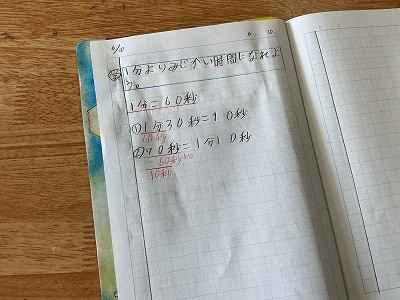 6/10
6 10
め 1分よりみじかい時間になれよ
う。
1分=60秒
①1分30秒=90秒
60秒
②70秒=1分10秒
-60秒
10秒